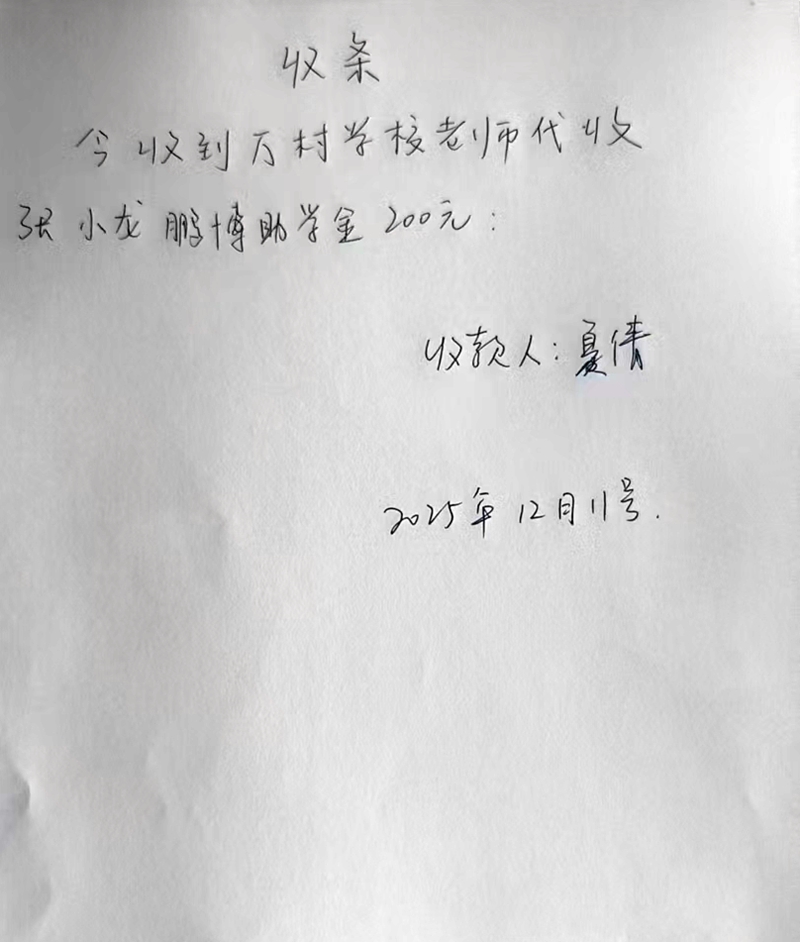 收条
今收到万村学校老师代收
张小龙鹏博助学金200元:
收款人:夏倩
2025年12月11号.